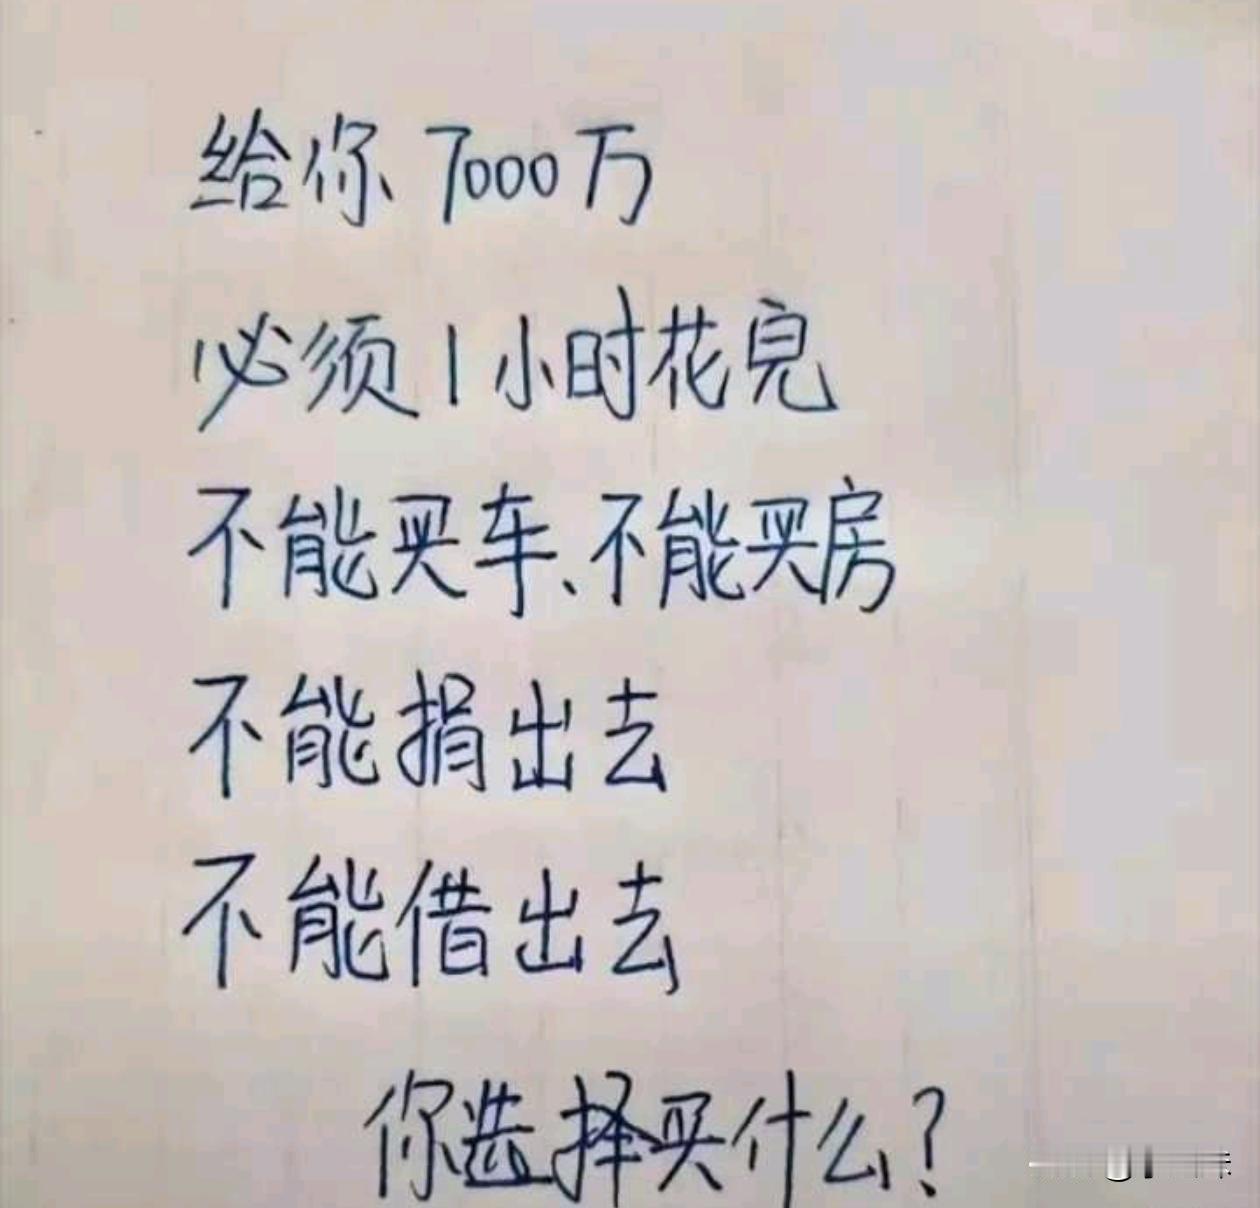 给你7000万
必须1小时花完
不能买车、不能买房
不能捐出去
不能借出去
你选择买什么?